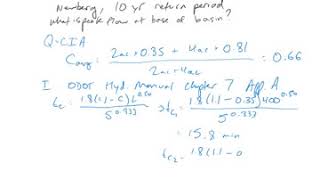 Newberg, 10 yr return period
what is peak flow at base of basin?
Q=CIA
Cavg = 2ac * 0.35 + 4ac * 0.81 / 2ac + 4ac = 0.66
I ODOT Hyd. Manual Chapter 7 App. A
tc = 18(1.1-C)L^0.50 / S^0.333 tc1 = 18(1.1-0.35)400^0.50 / 5^0.333
= 15.8 min
tc2 = 18(1.1-0